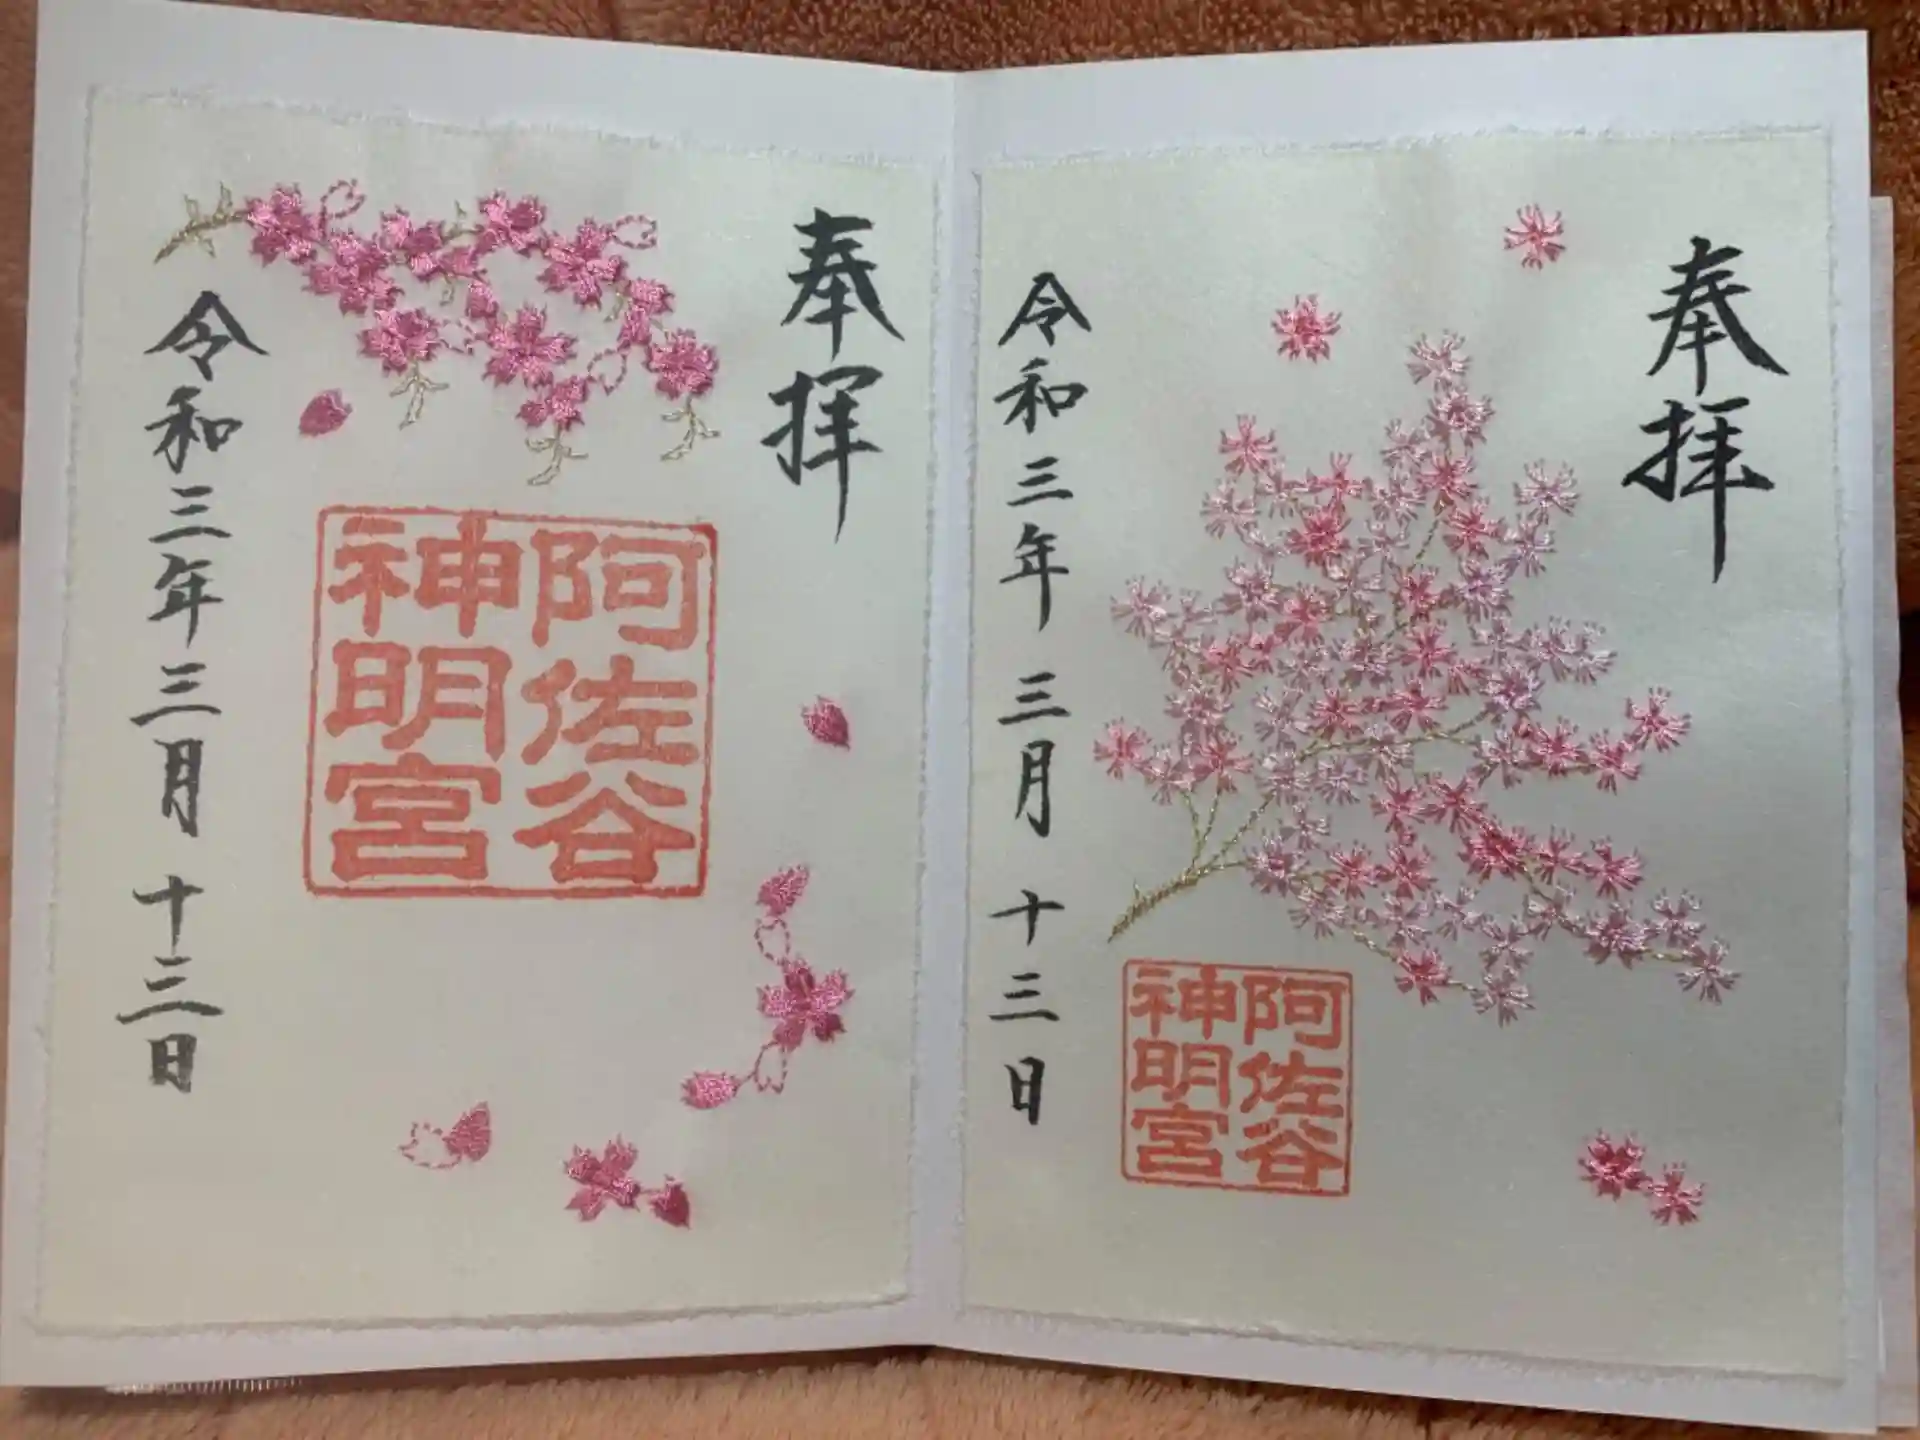 奉拝
阿佐谷
神明宮
令和三年三月十三日
奉拝
阿佐谷
神明宮
令和三年三月十三日